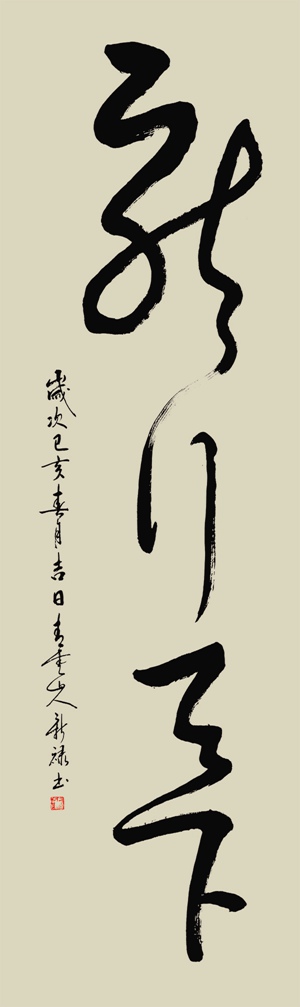 龙行天下
岁次己亥春月吉日青云山人新禄书